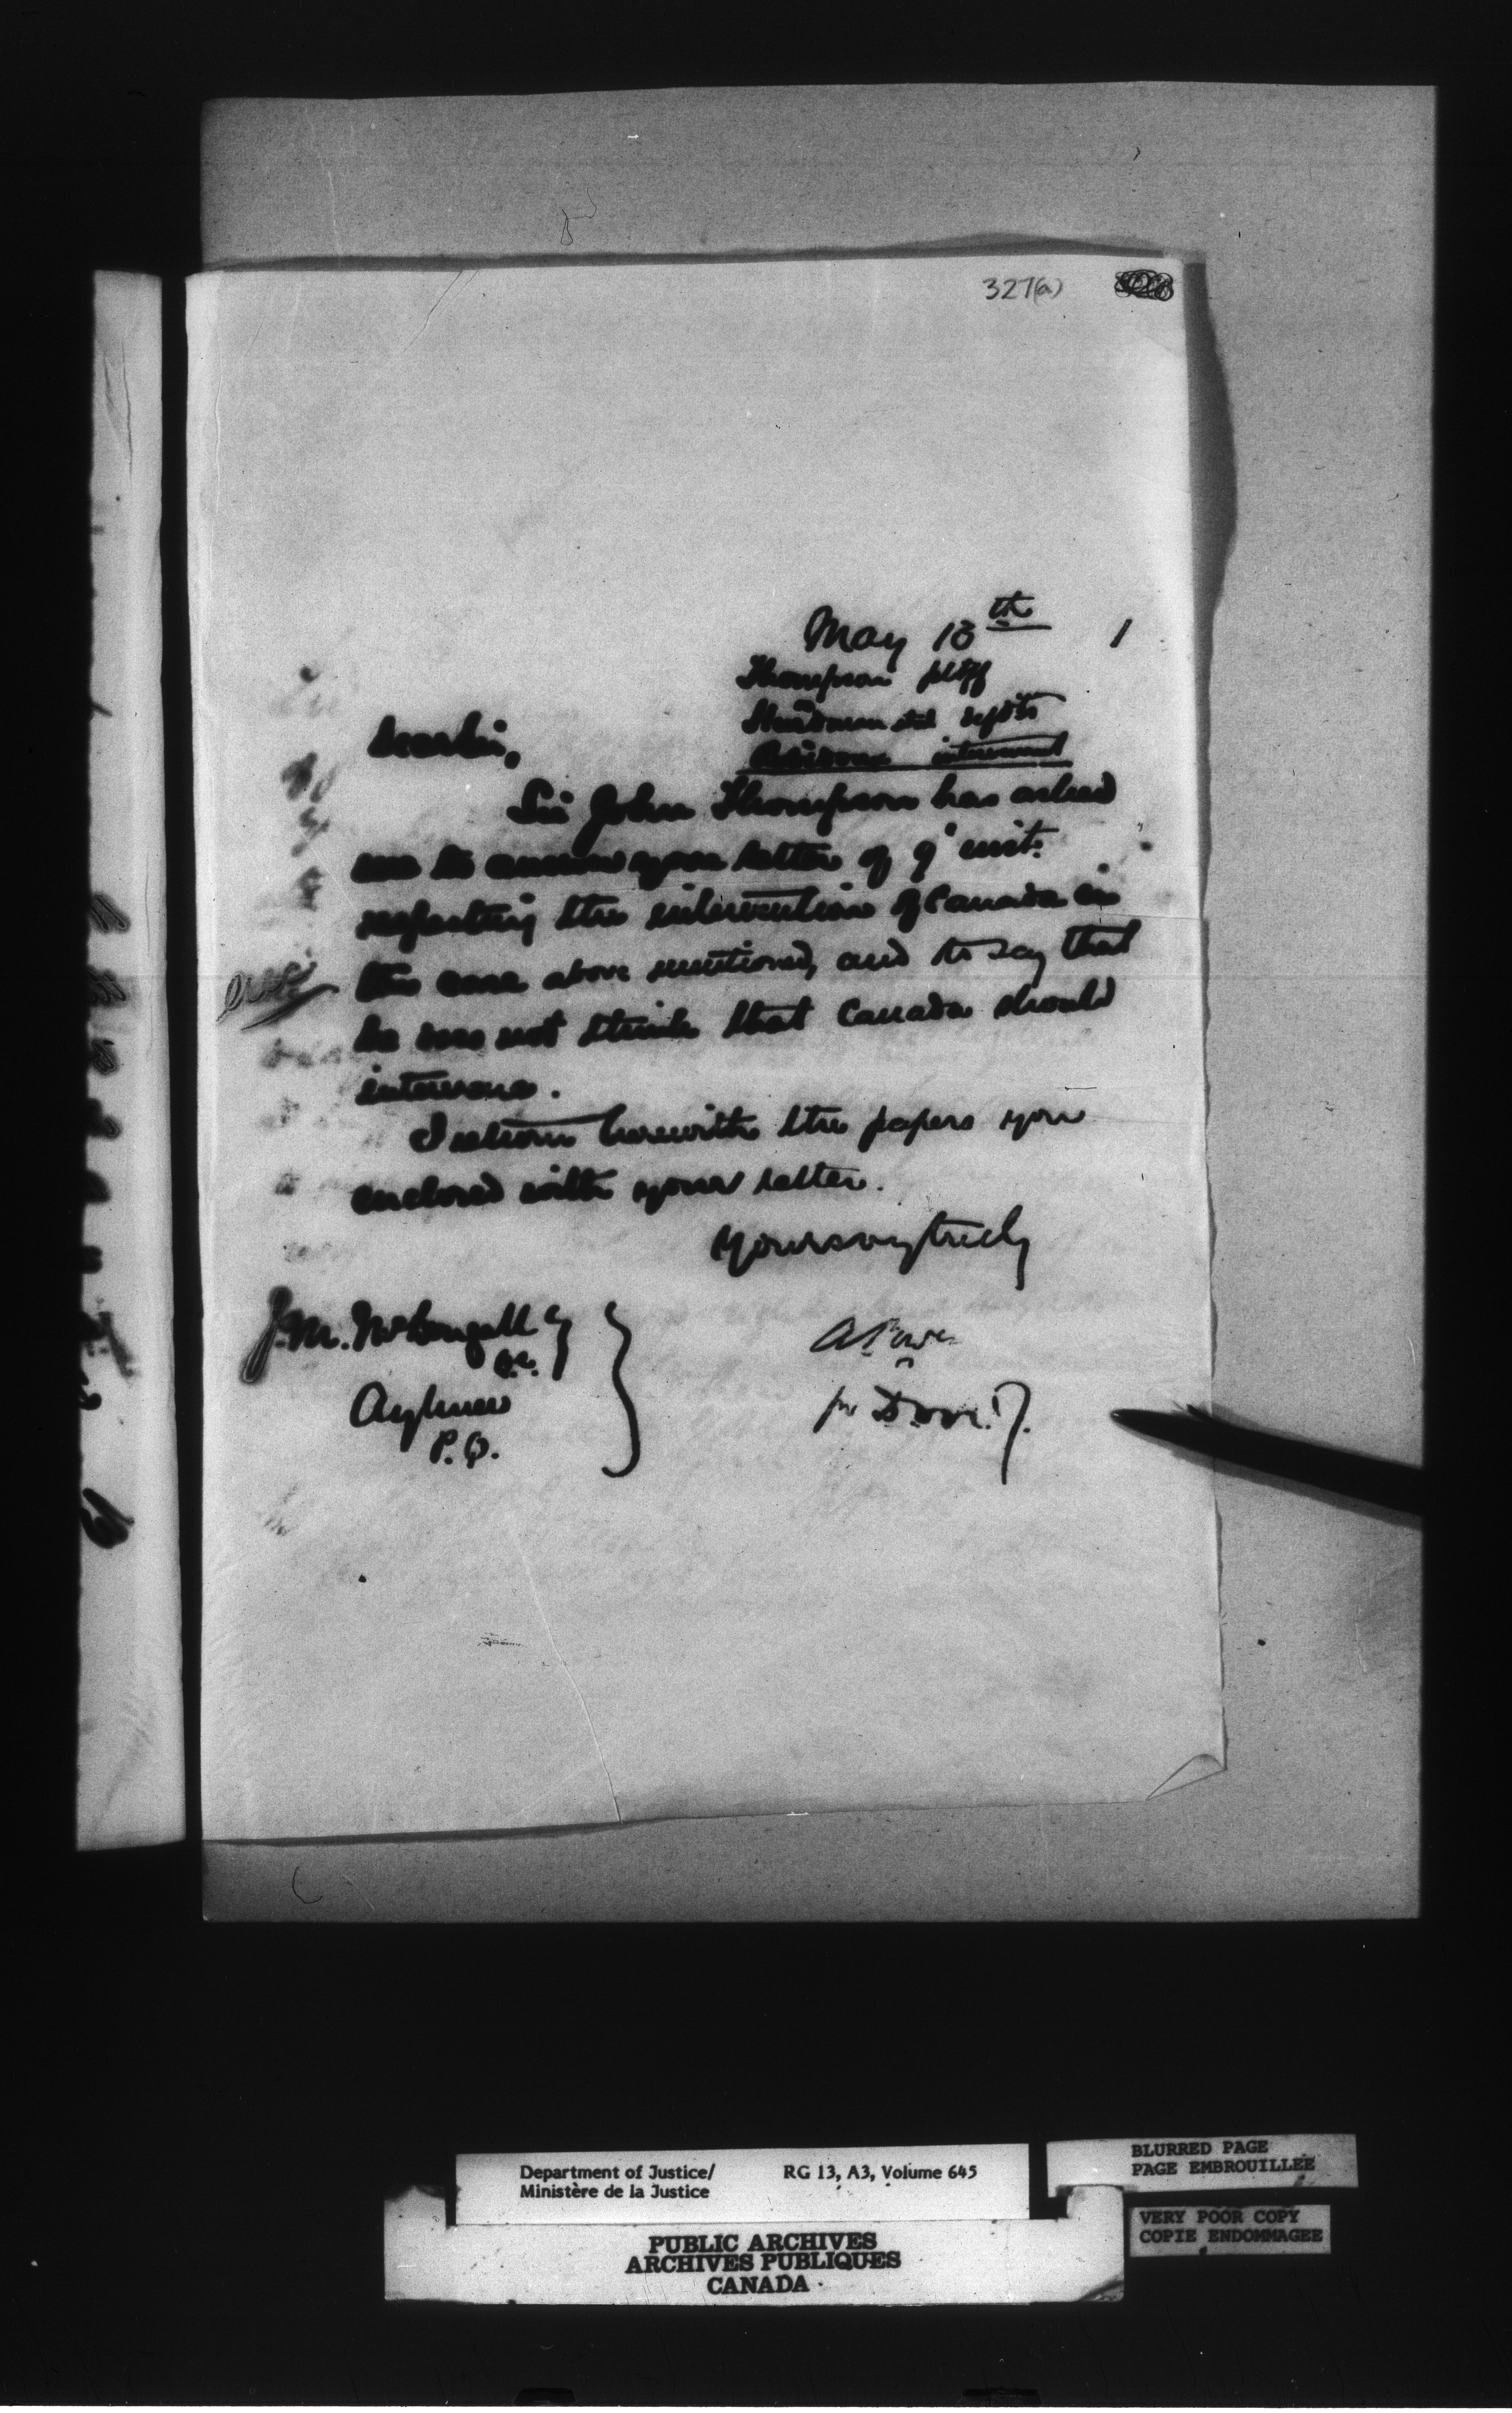 327(a)
May 13th 1
Thompson pltff
Hurdman et al defdts
intervenant
Dear Sir,
Sir John Thompson has asked
me to answer your letter of 9" inst.
respecting the intervention of Canada in
the case above mentioned, and to say that
he does not think that Canada should
intervene.
I return herewith the papers you
enclosed with your letter.
Yours very truly
J. M. McDougall Esq
Q.C.
Aylmer
P.Q.
A Power
for D.M.J.
Department of Justice/ RG 13, A3, Volume 645
Ministère de la Justice
PUBLIC ARCHIVES
ARCHIVES PUBLIQUES
CANADA
BLURRED PAGE
PAGE EMBROUILLEE
VERY POOR COPY
COPIE ENDOMMAGEE